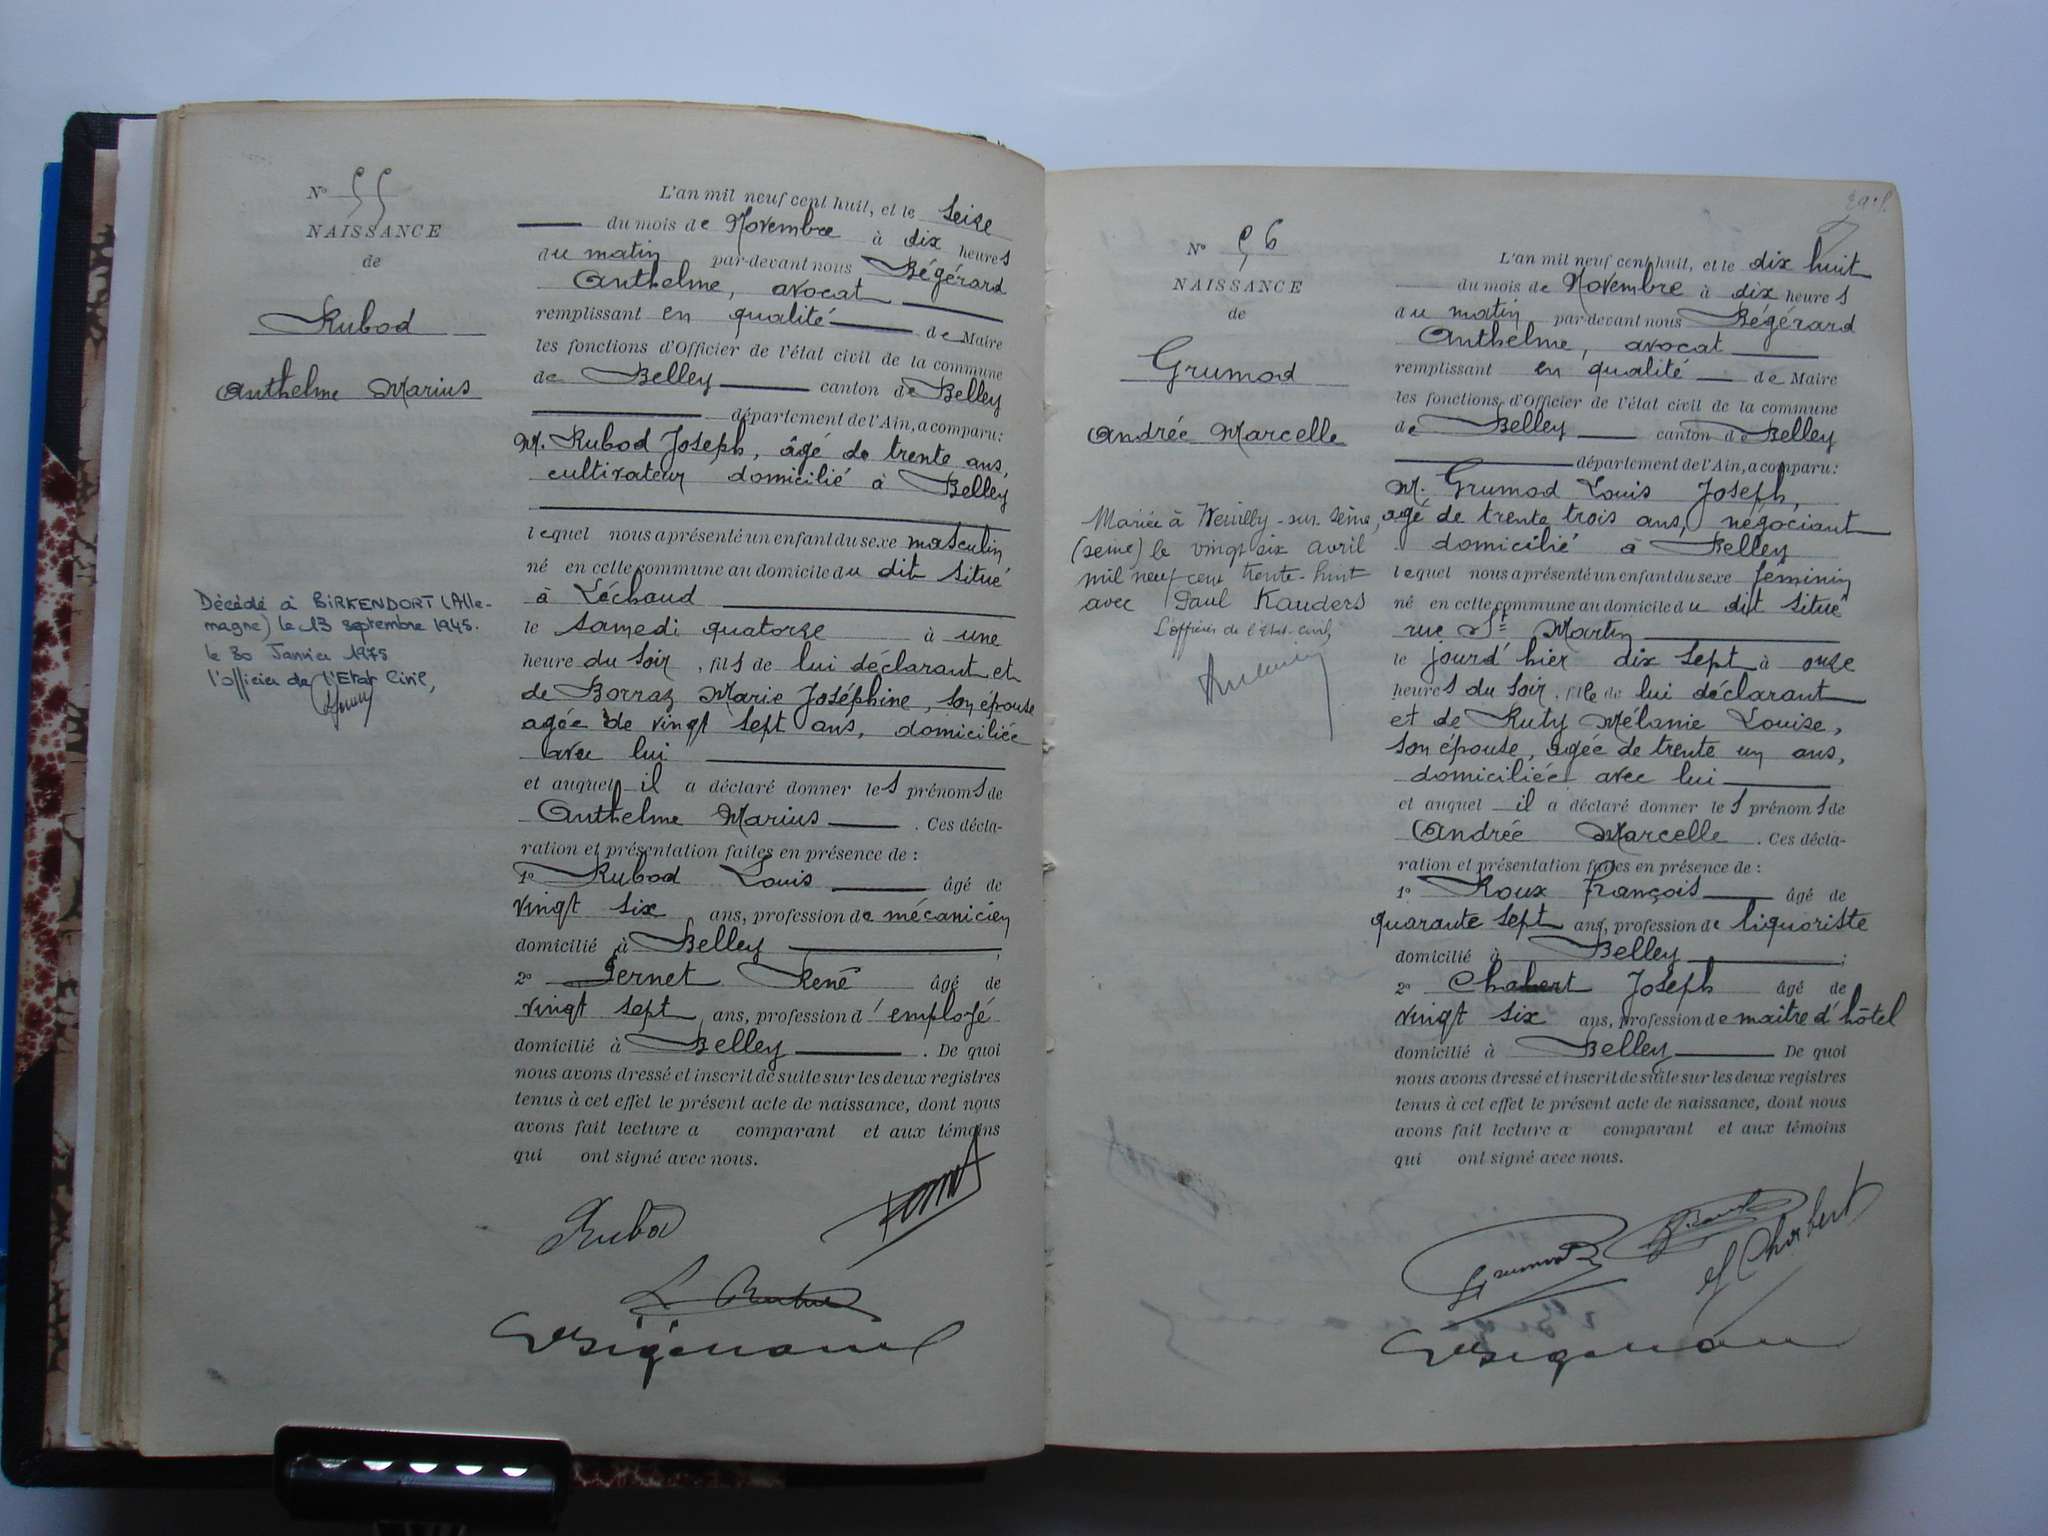 N° 55
NAISSANCE
de
Rubod
Anthelme Marius
Décédé à BIRKENDORT (Alle-
magne) le 13 septembre 1945.
le 30 Janvier 1975
l'officier de l'Etat Civil,
L'an mil neuf cent huit, et le seize
du mois de Novembre à dix heures
du matin par-devant nous Bégérard
Anthelme, avocat
remplissant en qualité de Maire
les fonctions d'Officier de l'état civil de la commune
de Belley canton de Belley
département de l'Ain, a comparu:
M. Rubod Joseph, âgé de trente ans,
cultivateur domicilié à Belley
lequel nous a présenté un enfant du sexe masculin
né en cette commune au domicile du dit situé
à Léchaud
le samedi quatorze à une
heure du soir, fils de lui déclarant et
de Borraz Marie Joséphine, son épouse
agée de vingt sept ans, domiciliée
avec lui
et auquel il a déclaré donner les prénoms de
Anthelme Marius. Ces décla-
ration et présentation faites en présence de :
1° Rubod Louis âgé de
vingt six ans, profession de mécanicien
domicilié à Belley ;
2° Pernet René âgé de
vingt sept ans, profession d'employé
domicilié à Belley. De quoi
nous avons dressé et inscrit de suite sur les deux registres
tenus à cet effet le présent acte de naissance, dont nous
avons fait lecture a comparant et aux témoins
qui ont signé avec nous.
Rubod
N° 56
NAISSANCE
de
Grumod
Andrée Marcelle
Mariée à Neuilly-sur-Seine,
(Seine) le vingt six avril
mil neuf cent trente-huit
avec Paul Kauders
L'officier de l'Etat-civil,
L'an mil neuf cent huit, et le dix huit
du mois de Novembre à dix heures
du matin par-devant nous Bégérard
Anthelme, avocat
remplissant en qualité de Maire
les fonctions d'Officier de l'état civil de la commune
de Belley canton de Belley
département de l'Ain, a comparu:
M. Grumod Louis Joseph,
agé de trente trois ans, négociant
domicilié à Belley
lequel nous a présenté un enfant du sexe féminin
né en cette commune au domicile du dit situé
rue St Martin
le jourd'hier dix sept à onze
heures du soir, fille de lui déclarant
et de Ruty Mélanie Louise,
son épouse, agée de trente un ans,
domiciliée avec lui
et auquel il a déclaré donner les prénoms de
Andrée Marcelle. Ces décla-
ration et présentation faites en présence de :
1° Roux François âgé de
quarante sept ans, profession de liquoriste
domicilié à Belley ;
2° Chabert Joseph âgé de
vingt six ans, profession de maître d'hôtel
domicilié à Belley De quoi
nous avons dressé et inscrit de suite sur les deux registres
tenus à cet effet le présent acte de naissance, dont nous
avons fait lecture a comparant et aux témoins
qui ont signé avec nous.
Grumod
J Chabert